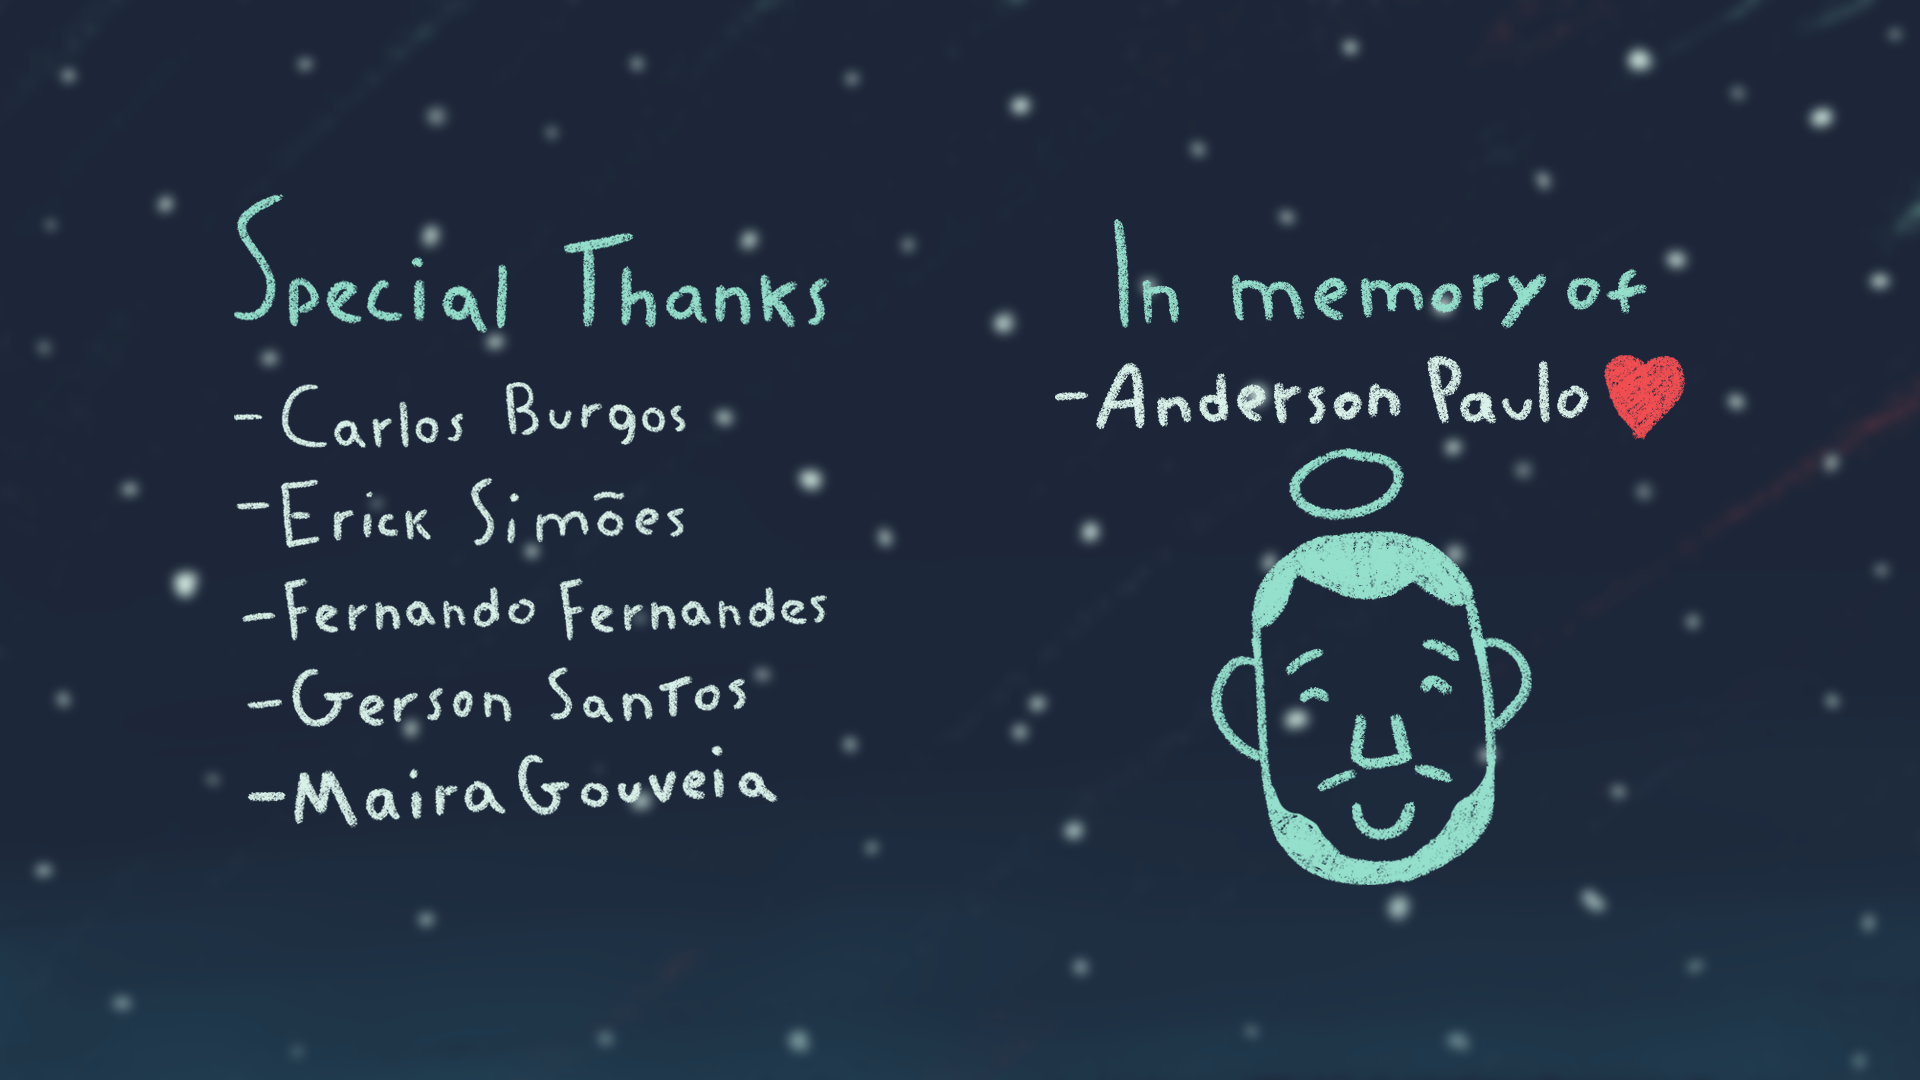 Special Thanks
- Carlos Burgos
- Erick Simões
- Fernando Fernandes
- Gerson Santos
- Maira Gouveia
In memory of
- Anderson Paulo